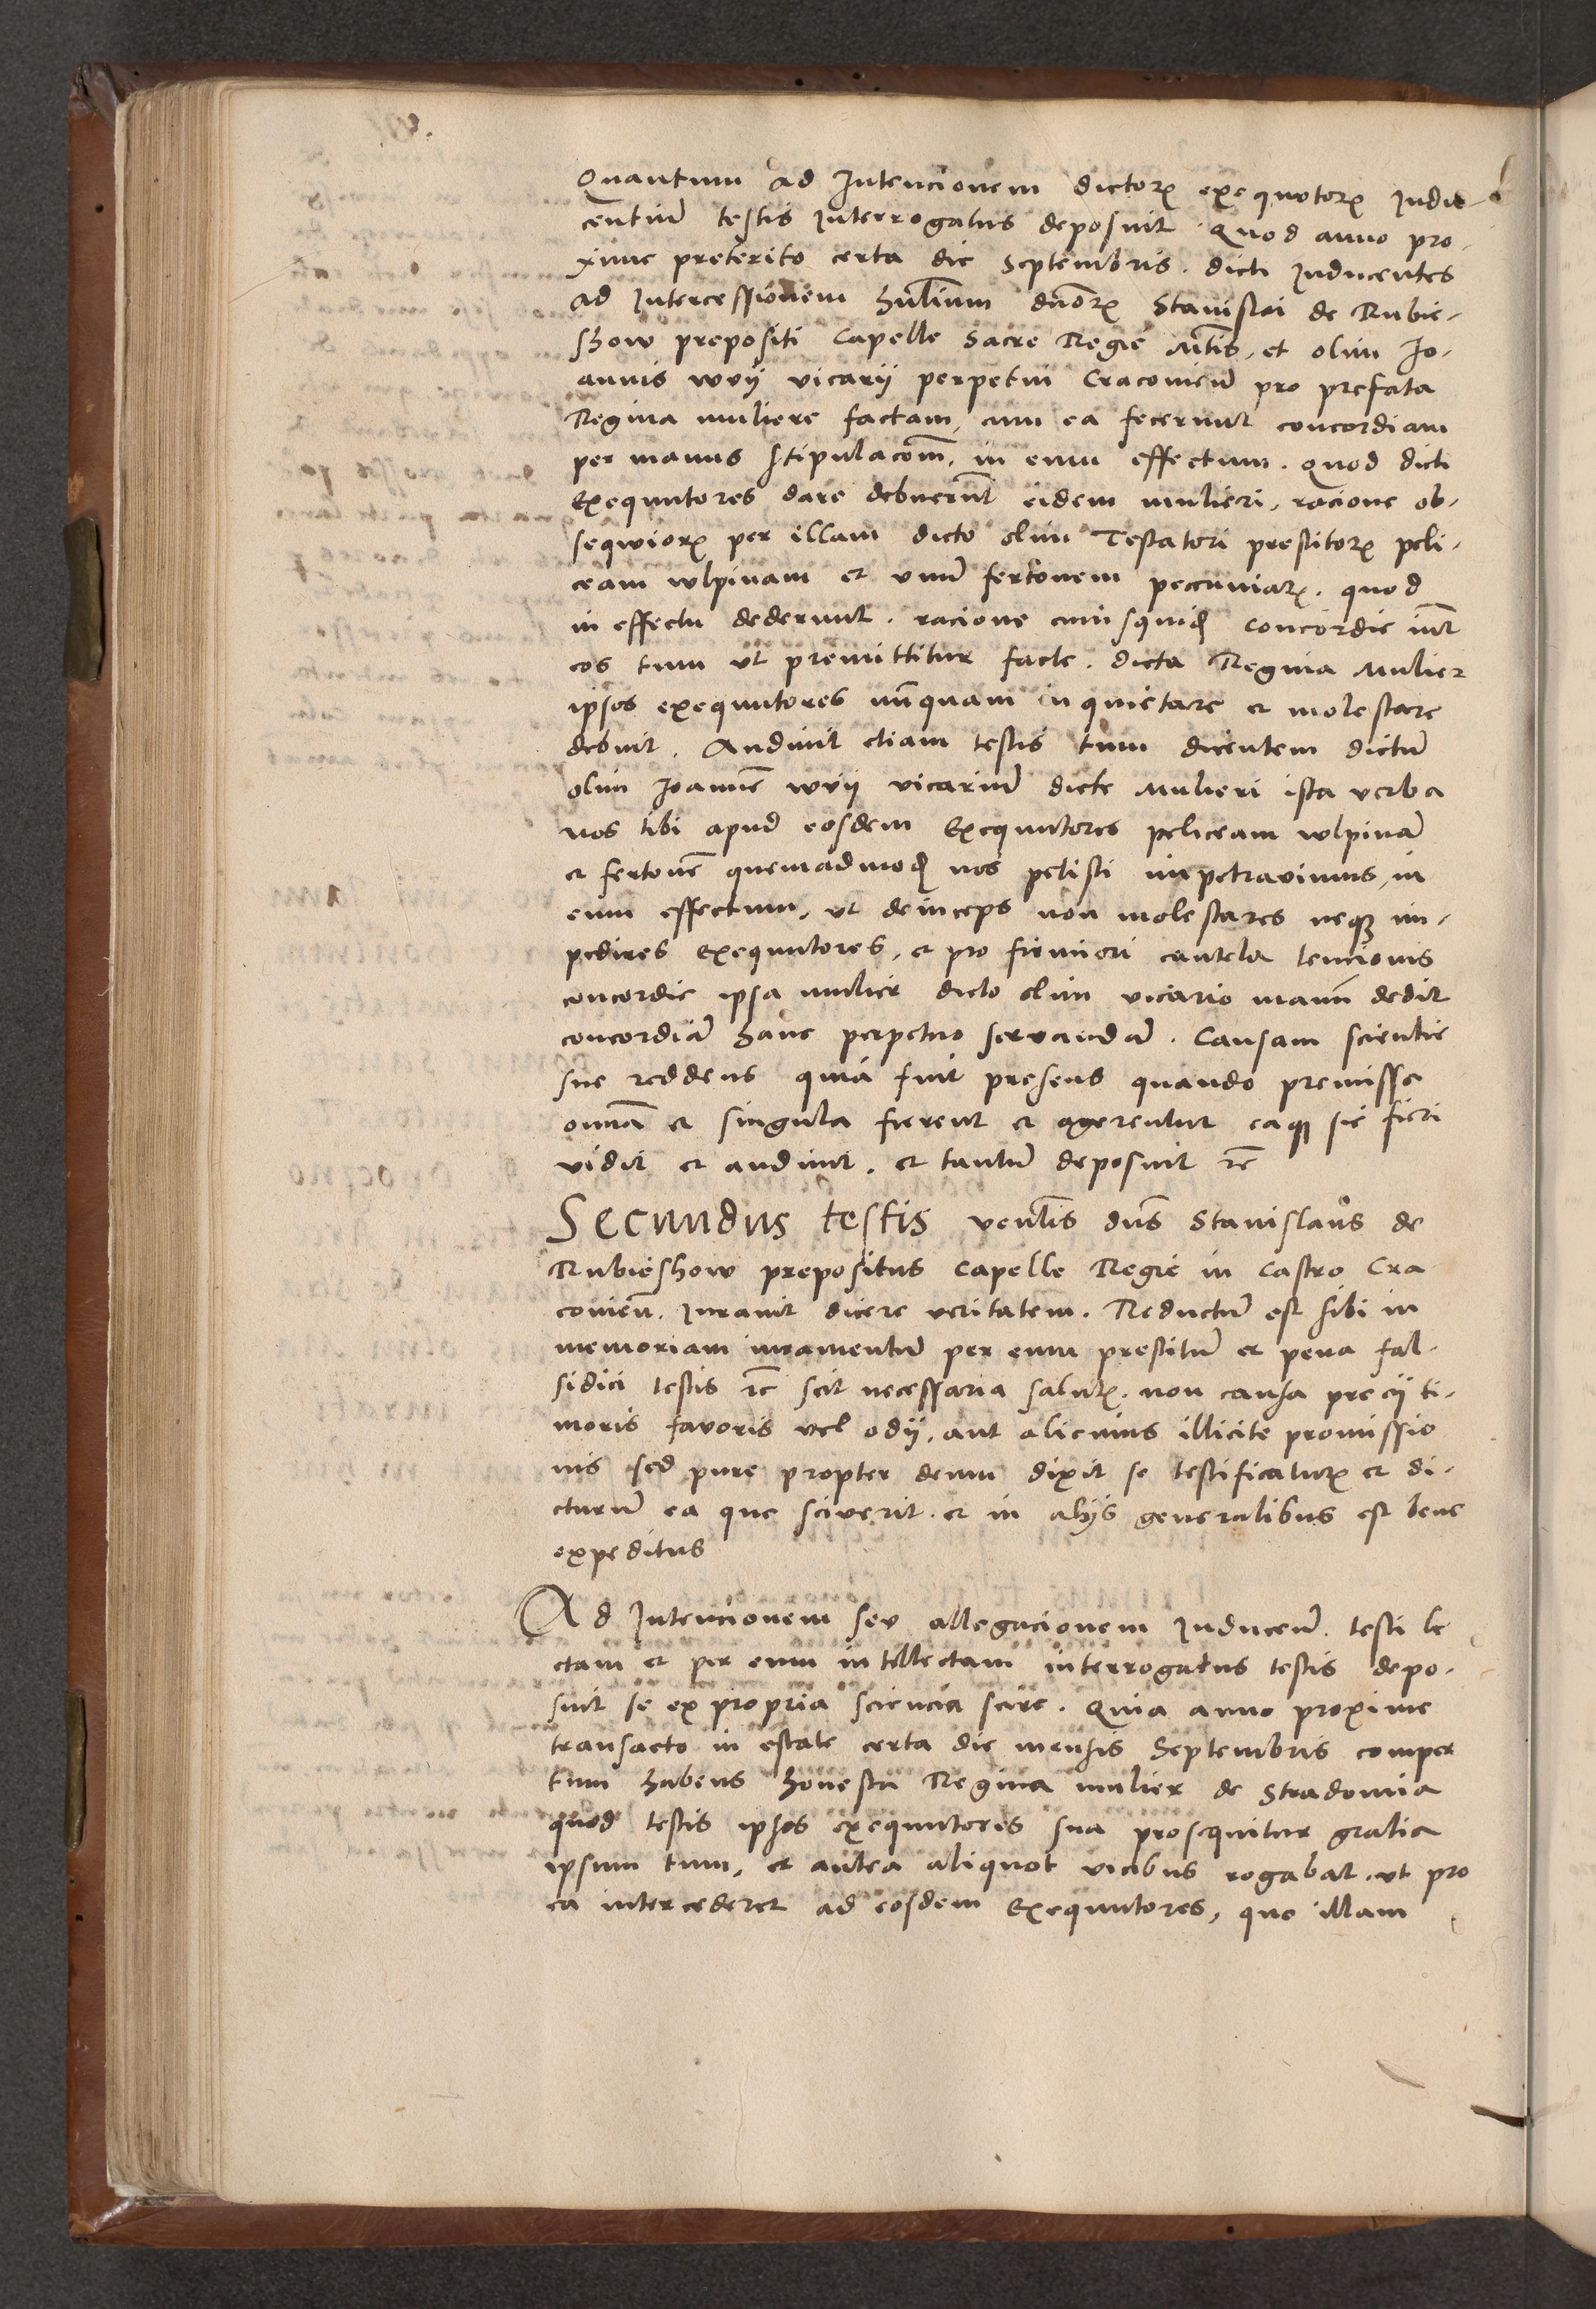 Quantum ad Intencionem dictorꝝ exequutorꝝ Indu-
centiũ testis Interrogatus deposuit. Quod anno pro-
xime preterito certa die Septembris. dicti Inducentes
ad Intercessionem hu͠lium dn͠orꝝ Stanislai de Rubie-
show prepositi Capelle Sacre Regie M͠tis, et olim Jo-
annis wrij vicarij perpetui Cracouien͠ pro prefata
Regina muliere factam, cum ea fecerunt concordiam
per manus stipulacom͠, in eum effectum. Quod dicti
Exequutores dare debueru͠t eidem mulieri, racione ob-
sequiorꝝ per illam dicto olim Testatori prestitorꝝ peli-
ceam wlpinam et vnũ fertonem pecuniarꝝ. quod
in effectu dederunt. racione cuiusquidẽ concordie int͠
eos tum vt premittitur facte. dicta Regina Mulier
ipsos exequutores nu͠nquam inquietare et molestare
debuit. Audiuit etiam testis tum dicentem dictũ
olim Joannẽ wrij vicariũ dicte Mulieri ista verba
nos tibi apud eosdem Exequutores peliceam wlpinã
et fertonẽ quemadmodũ nos petisti impetrauimus, in
eum effectum, vt deinceps non molestares neqꝫ im-
pedires Exequutores, et pro firmiori cautela tencionis
concordie ipsa mulier dicto olim vicario manũ dedit
concordiã hanc perpetuo seruandã. Causam scientie
sue reddens quia fuit presens quando premissa
omnã et singula fierent et agerentur eaqꝫ sic fieri
vidit et audiuit. et tantũ deposuit rc͠
Secundus testis ven͠lis dn͠s Stanislaus de
Rubieshow prepositus Capelle Regie in Castro Cra
couien͠. Iurauit dicere veritatem. Reductũ est sibi in
memoriam iuramentũ per eum prestitũ et pena fal-
sidici testis rc͠ scit necessaria salutꝝ. non causa precij ti-
moris fauoris vel odij, aut alicuius illicite promissio
nis sed pure propter deum dixit se testificaturꝝ et di-
cturũ ea que sciuerit. et in alijs generalibus est bene
expeditus
Ad Intencionem seu allegacionem Inducen͠. testi le
ctam et per eum intellectam interrogatus testis depo-
suit se ex propria sciencia scire. Quia anno proxime
transacto in estate certa die mensis Septembris comper
tum habens honesta Regina mulier de Stradomia
quod testis ipsos exequutores sua prosequitur gratia
ipsum tum, et antea aliquot vicibus rogabat. vt pro
ea intercederet ad eosdem Exequutores, quo illam